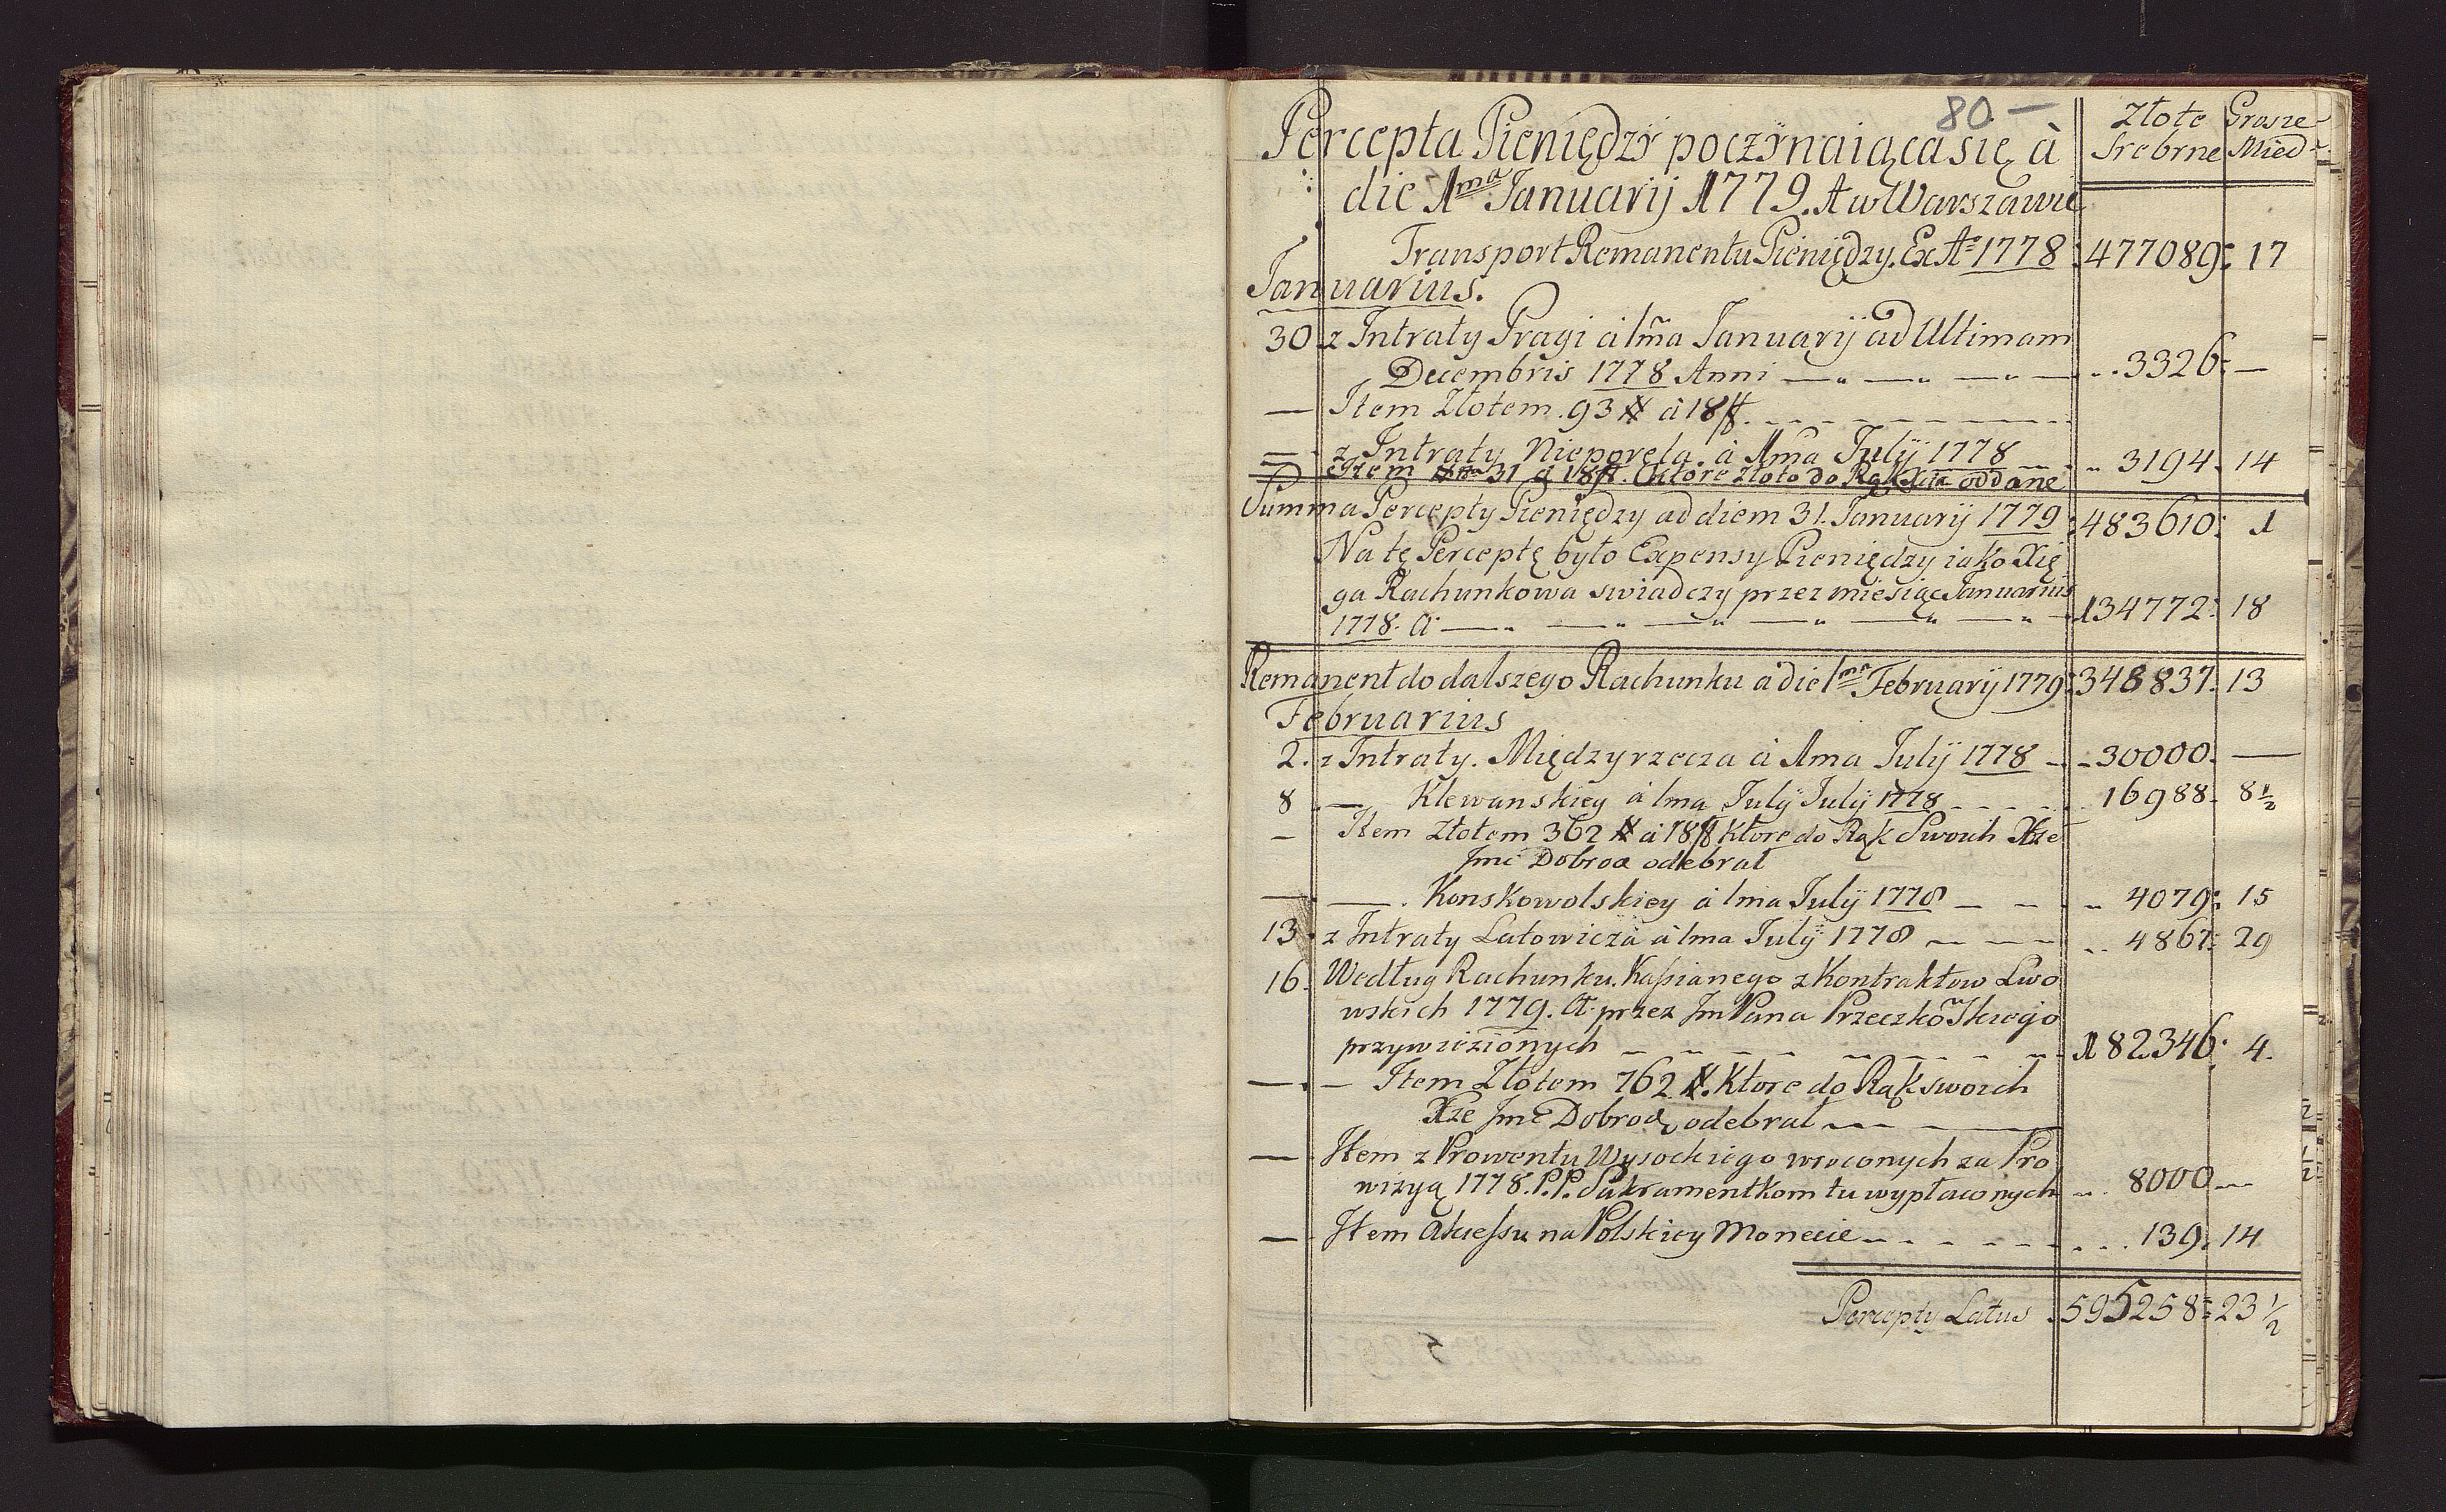 80 —
Percepta Pieniędzÿ poczÿnaiącasię à
die 1ma Januarij 1779. A w Warszawie
Złote Srebrne Grosze Mied
Transport Remanentu Pieniędzy. Ex Ao 1778 477089: 17
Januarius.
30 z Intraty Pragi à 1ma Januarij ad Ultimam
Decembris 1778 Anni — „ — „ — „ — 3326: —
— Item Złotem. 93 # à 18 f.
— z Intraty Nieporęta à 1ma Julÿ 1778 — 3194. 14
Item 31 a 18 f. Ktore złoto do Rąk Xcia oddane
Summa Percepty Pieniędzy ad diem 31. Januarij 1779 483610: 1
Na tę Perceptę było Expensy Pieniędzy iako Xię
ga Rachunkowa swiadczy przez miesiąc Januarius
1778. A. — „ — „ — „ — „ — „ — 134772: 18
Remanent do dalszego Rachunku à die 1ma Februarij 1779 348837. 13
Februarius
2. z Intraty. Międzyrzecza à 1ma Julÿ 1778 - 30000. —
8 — Klewanskiey à 1ma Julÿ Julÿ 1778 16988. 8 1/2
— Item Złotem 362 # à 18 f Ktore do Rąk Swoich Xze
Jmć Dobroa odebrał
— —. Konskowolskiey à 1ma Julÿ 1778 — 4079: 15
13. z Intraty Latowicza à 1ma Julÿ 1778 — 4867: 29
16. Według Rachunku. Kaſsianego z Kontraktow Lwo
wskich 1779. A. przez Jm Pana Przeczkowskiego
przywiezionych — 182346: 4.
—. — Item Złotem 762 #. Ktore do Rąk swoich
Xze Jmć Dobrod. odebrał —
— Item z Prowentu Wysockiego wroconych za Pro
wizyą 1778. P.P. Sakramentkom tu wypłaconych 8000 —
— Item Akceſsu na Polskiey Monecie 139. 14
Percepty Latus 595258: 23 1/2